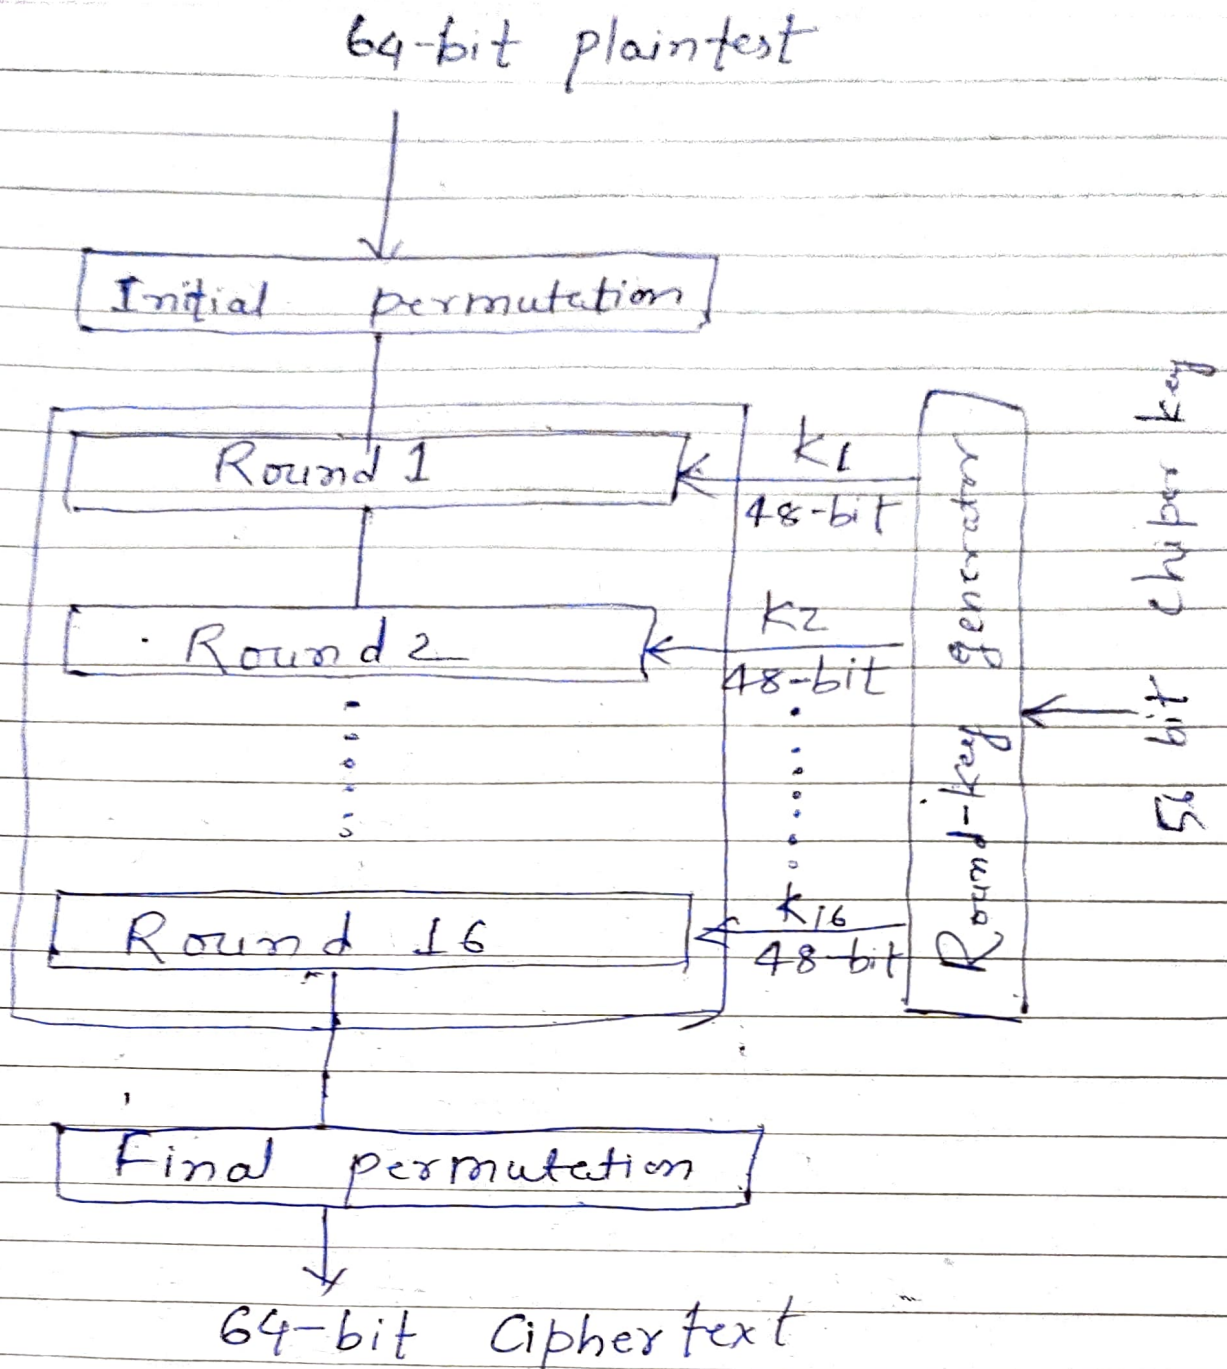 64-bit plaintest
Initial permutation
Round 1
K1
48-bit
Round 2
K2
48-bit
Round 16
K16
48-bit
Round-key generator
56 bit chiper key
Final permutation
64-bit Ciphertext